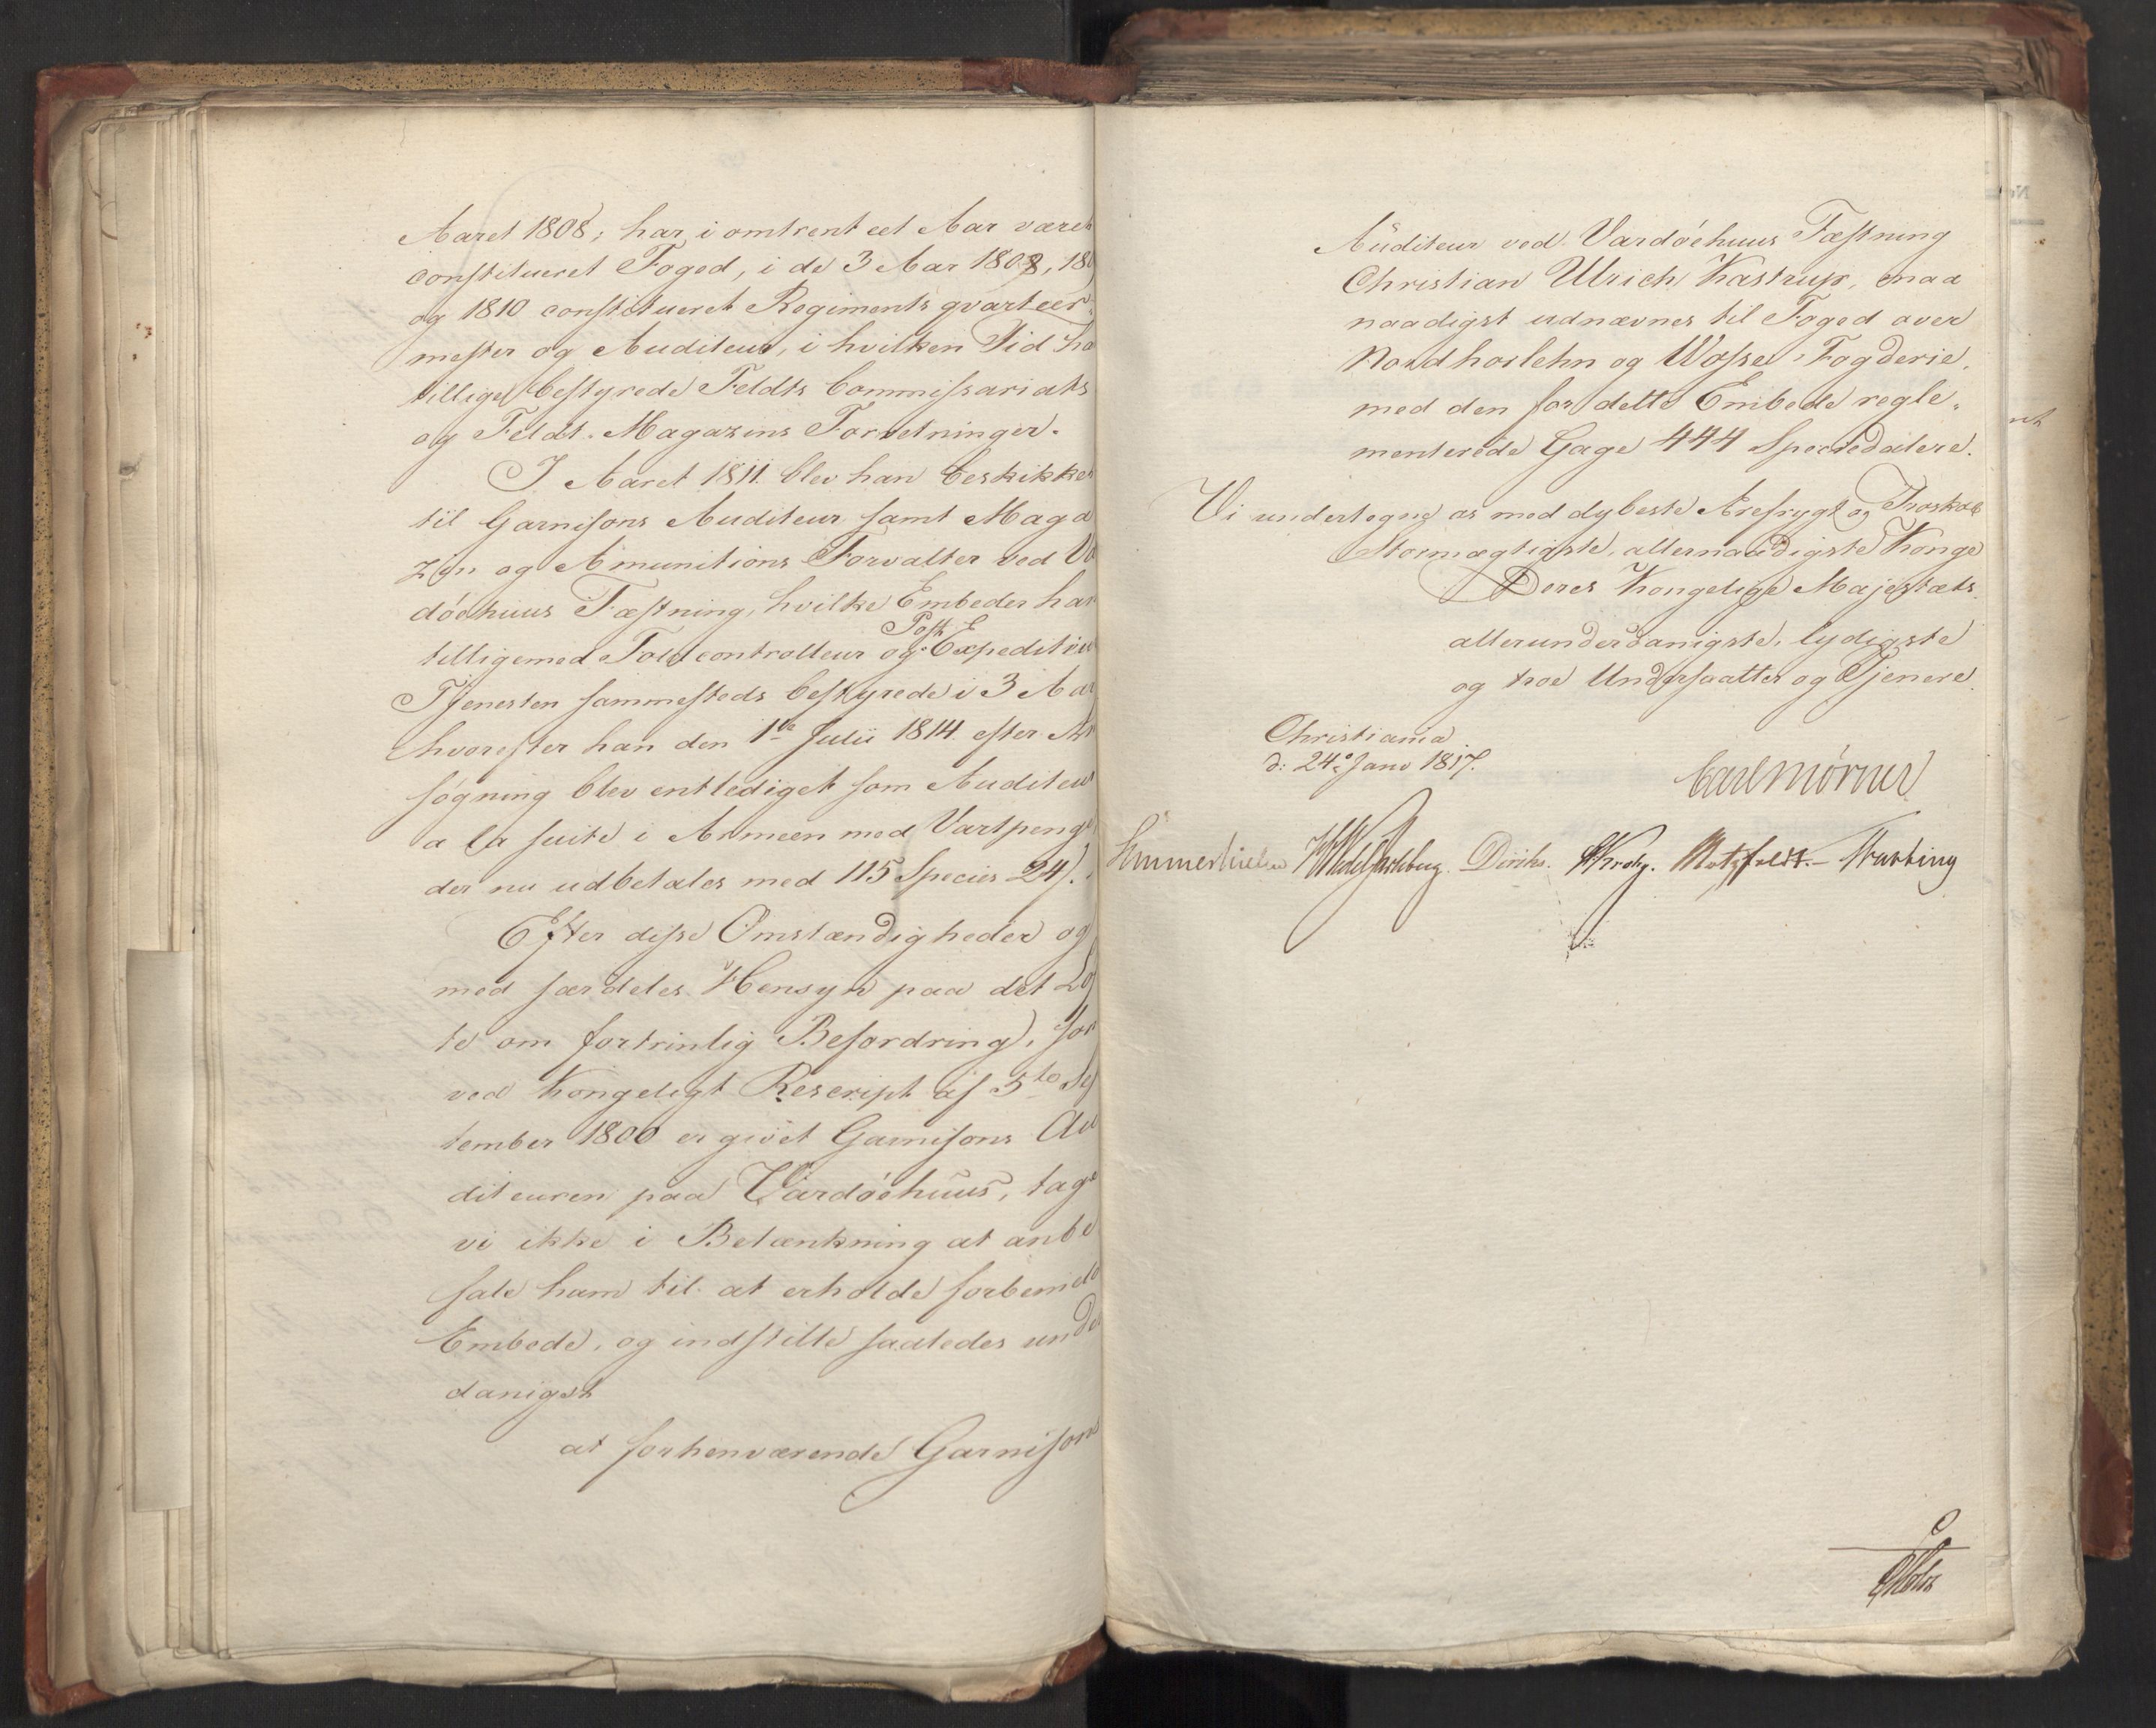 Aaret 1808; har i omtrent eet Aar været
constitueret Foged, i de 3 Aar 1808, 180
og 1810 constitueret Regiments gvarteer-
mester og Auditeur, i hvilken Tid ha
tillige bestyrede Feldts Commissariats
og Feldt-Magazins Forretninger.
I Aaret 1811 blev han beskikket
til Garnisons Auditeur samt Maga
zin og Amunitions Forvalter ved Va
döehuus Fæstning, hvilke Embeder han
Post
tilligemed Toldcontrolleur og Expediteur
Tjenesten sammesteds bestyrede i 3 Aar
hvorefter han den 1te Julii 1814 efter An
søgning blev entlediget som Auditeur
a la suite i Armeen med Vartpenge
der nu udbetales med 115 Species 24 s.
Efter disse Omstændigheder og
med særdeles Hensyn paa det Løf
te om fortrinlig Befordring, som
ved Kongeligt Rescript af 5te Sep
tember 1800 er givet Garnisons Au
diteuren paa Vardöehuus, tage
vi ikke i Betænkning at anbe
fale ham til at erholde forbemeldte
Embede, og indstille saaledes under
danigst
at forhenværende Garnisons
Auditeur ved Vardöehuus Fæstning
Christian Ulrich Kastrup, maa
naadigst udnævnes til Foged over
Nordhorlehn og Wosse Fogderie,
med den for dette Embede regle-
menterede Gage 444 Speciedalere.
Vi undertegne os med dybeste Ærefrygt og Troskab
Stormægtigste, allernaadigste Konge
Deres Kongelige Majestæts
allerunderdanigste, lydigste
og troe Undersaatter og Tjenere
Christiania
d: 24de Janv 1817.
Carl Mörner
Sommerhielm HWedelJarlsberg. Diriks. CKrohg. Motzfeldt.- Thrane
Holst